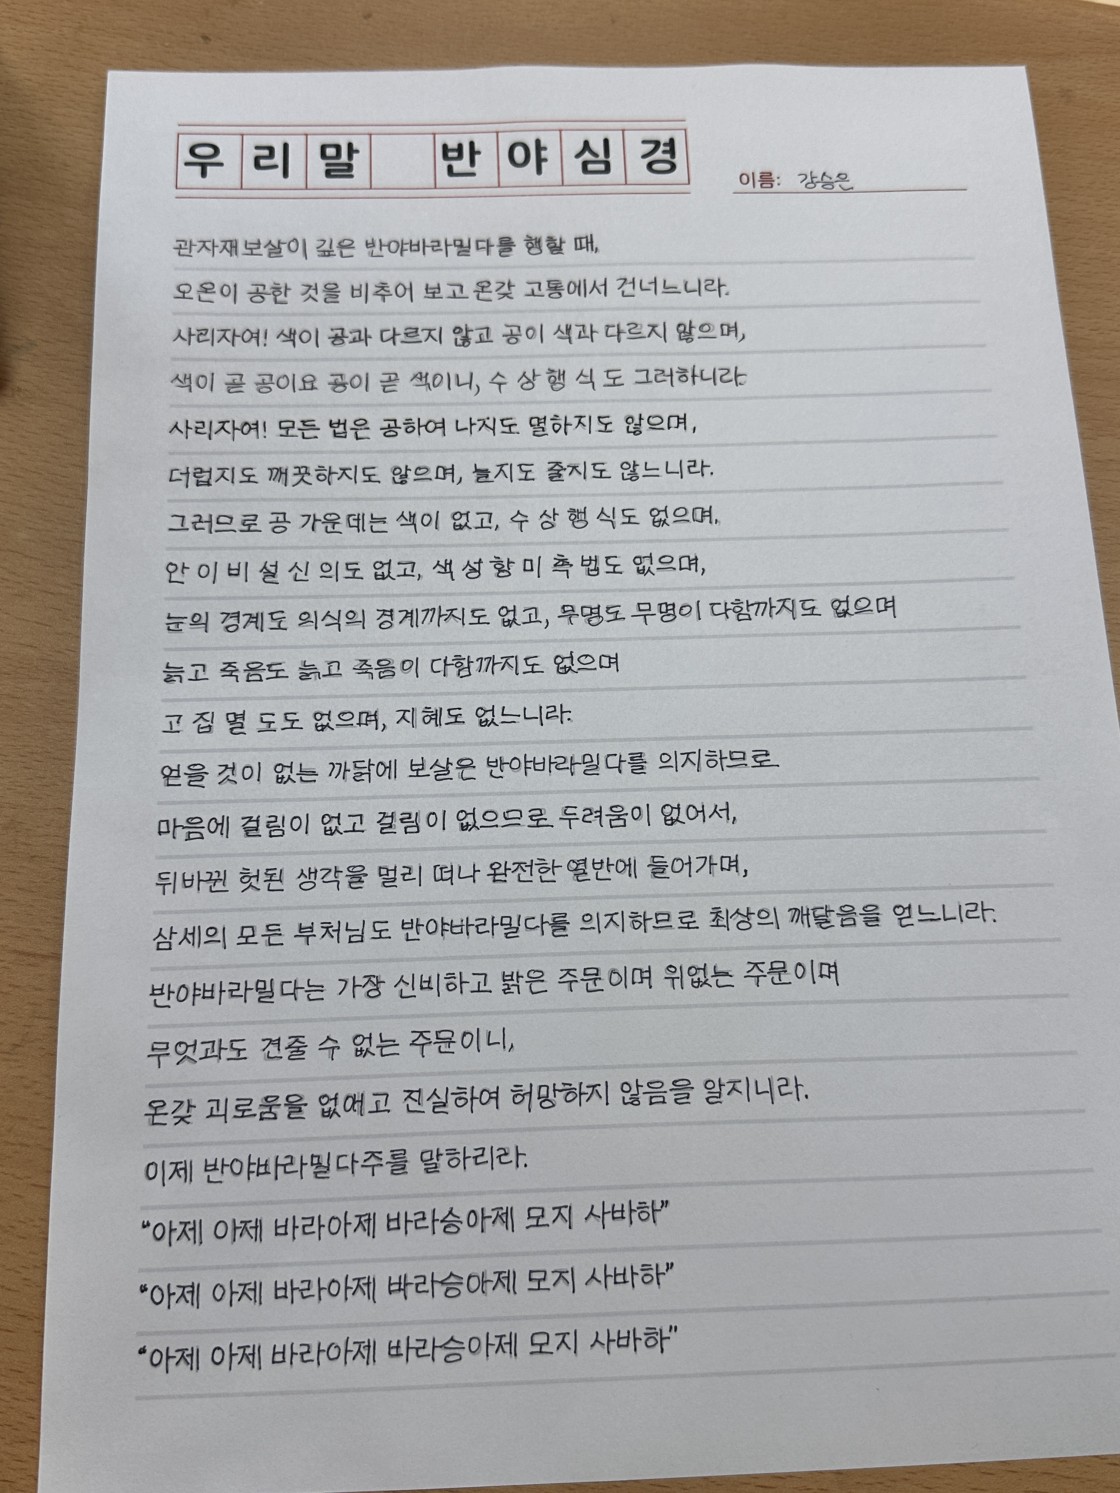 우리말 반야심경
이름: 강승은
관자재보살이 깊은 반야바라밀다를 행할 때,
오온이 공한 것을 비추어 보고 온갖 고통에서 건너느니라.
사리자여! 색이 공과 다르지 않고 공이 색과 다르지 않으며,
색이 곧 공이요 공이 곧 색이니, 수 상 행 식 도 그러하니라.
사리자여! 모든 법은 공하여 나지도 멸하지도 않으며,
더럽지도 깨끗하지도 않으며, 늘지도 줄지도 않느니라.
그러므로 공 가운데는 색이 없고, 수 상 행 식도 없으며,
안 이 비 설 신 의도 없고, 색 성 향 미 촉 법도 없으며,
눈의 경계도 의식의 경계까지도 없고, 무명도 무명이 다함까지도 없으며
늙고 죽음도 늙고 죽음이 다함까지도 없으며
고 집 멸 도도 없으며, 지혜도 없느니라.
얻을 것이 없는 까닭에 보살은 반야바라밀다를 의지하므로
마음에 걸림이 없고 걸림이 없으므로 두려움이 없어서,
뒤바뀐 헛된 생각을 멀리 떠나 완전한 열반에 들어가며,
삼세의 모든 부처님도 반야바라밀다를 의지하므로 최상의 깨달음을 얻느니라.
반야바라밀다는 가장 신비하고 밝은 주문이며 위없는 주문이며
무엇과도 견줄 수 없는 주문이니,
온갖 괴로움을 없애고 진실하여 허망하지 않음을 알지니라.
이제 반야바라밀다주를 말하리라.
"아제 아제 바라아제 바라승아제 모지 사바하"
"아제 아제 바라아제 바라승아제 모지 사바하"
"아제 아제 바라아제 바라승아제 모지 사바하"